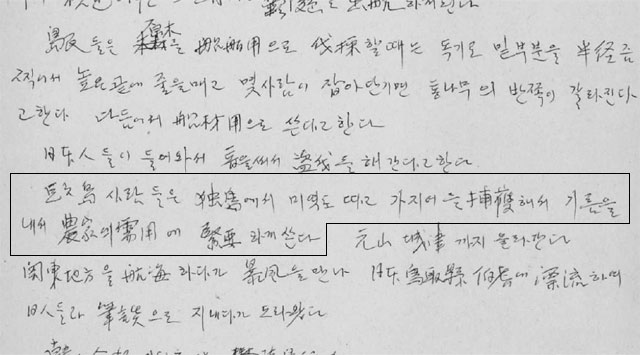 島民들은 을 船舶用으로 伐採할때는 독기로 밑부분을 半径즘
찍어서 높은곧에 줄을매고 몇사람이 잡아단기면 통나무의 반쪽이 갈라진다
고한다 다듬어서 船材用으로 쓴다고한다
日本人들이 들어와서 톱을써서 盜伐을 해간다고한다
巨文島 사람들은 独島에서 미역도 따고 가지어을 捕獲해서 기름을
내서 農家의 需用에 緊要하게 쓴다 元山 城津까지 올라한다
関東地方을 航海하다가 暴風을 만나 日本 鳥取縣 伯耆에 漂流하며
日人들과 筆談으로 지내다가 도라왔다